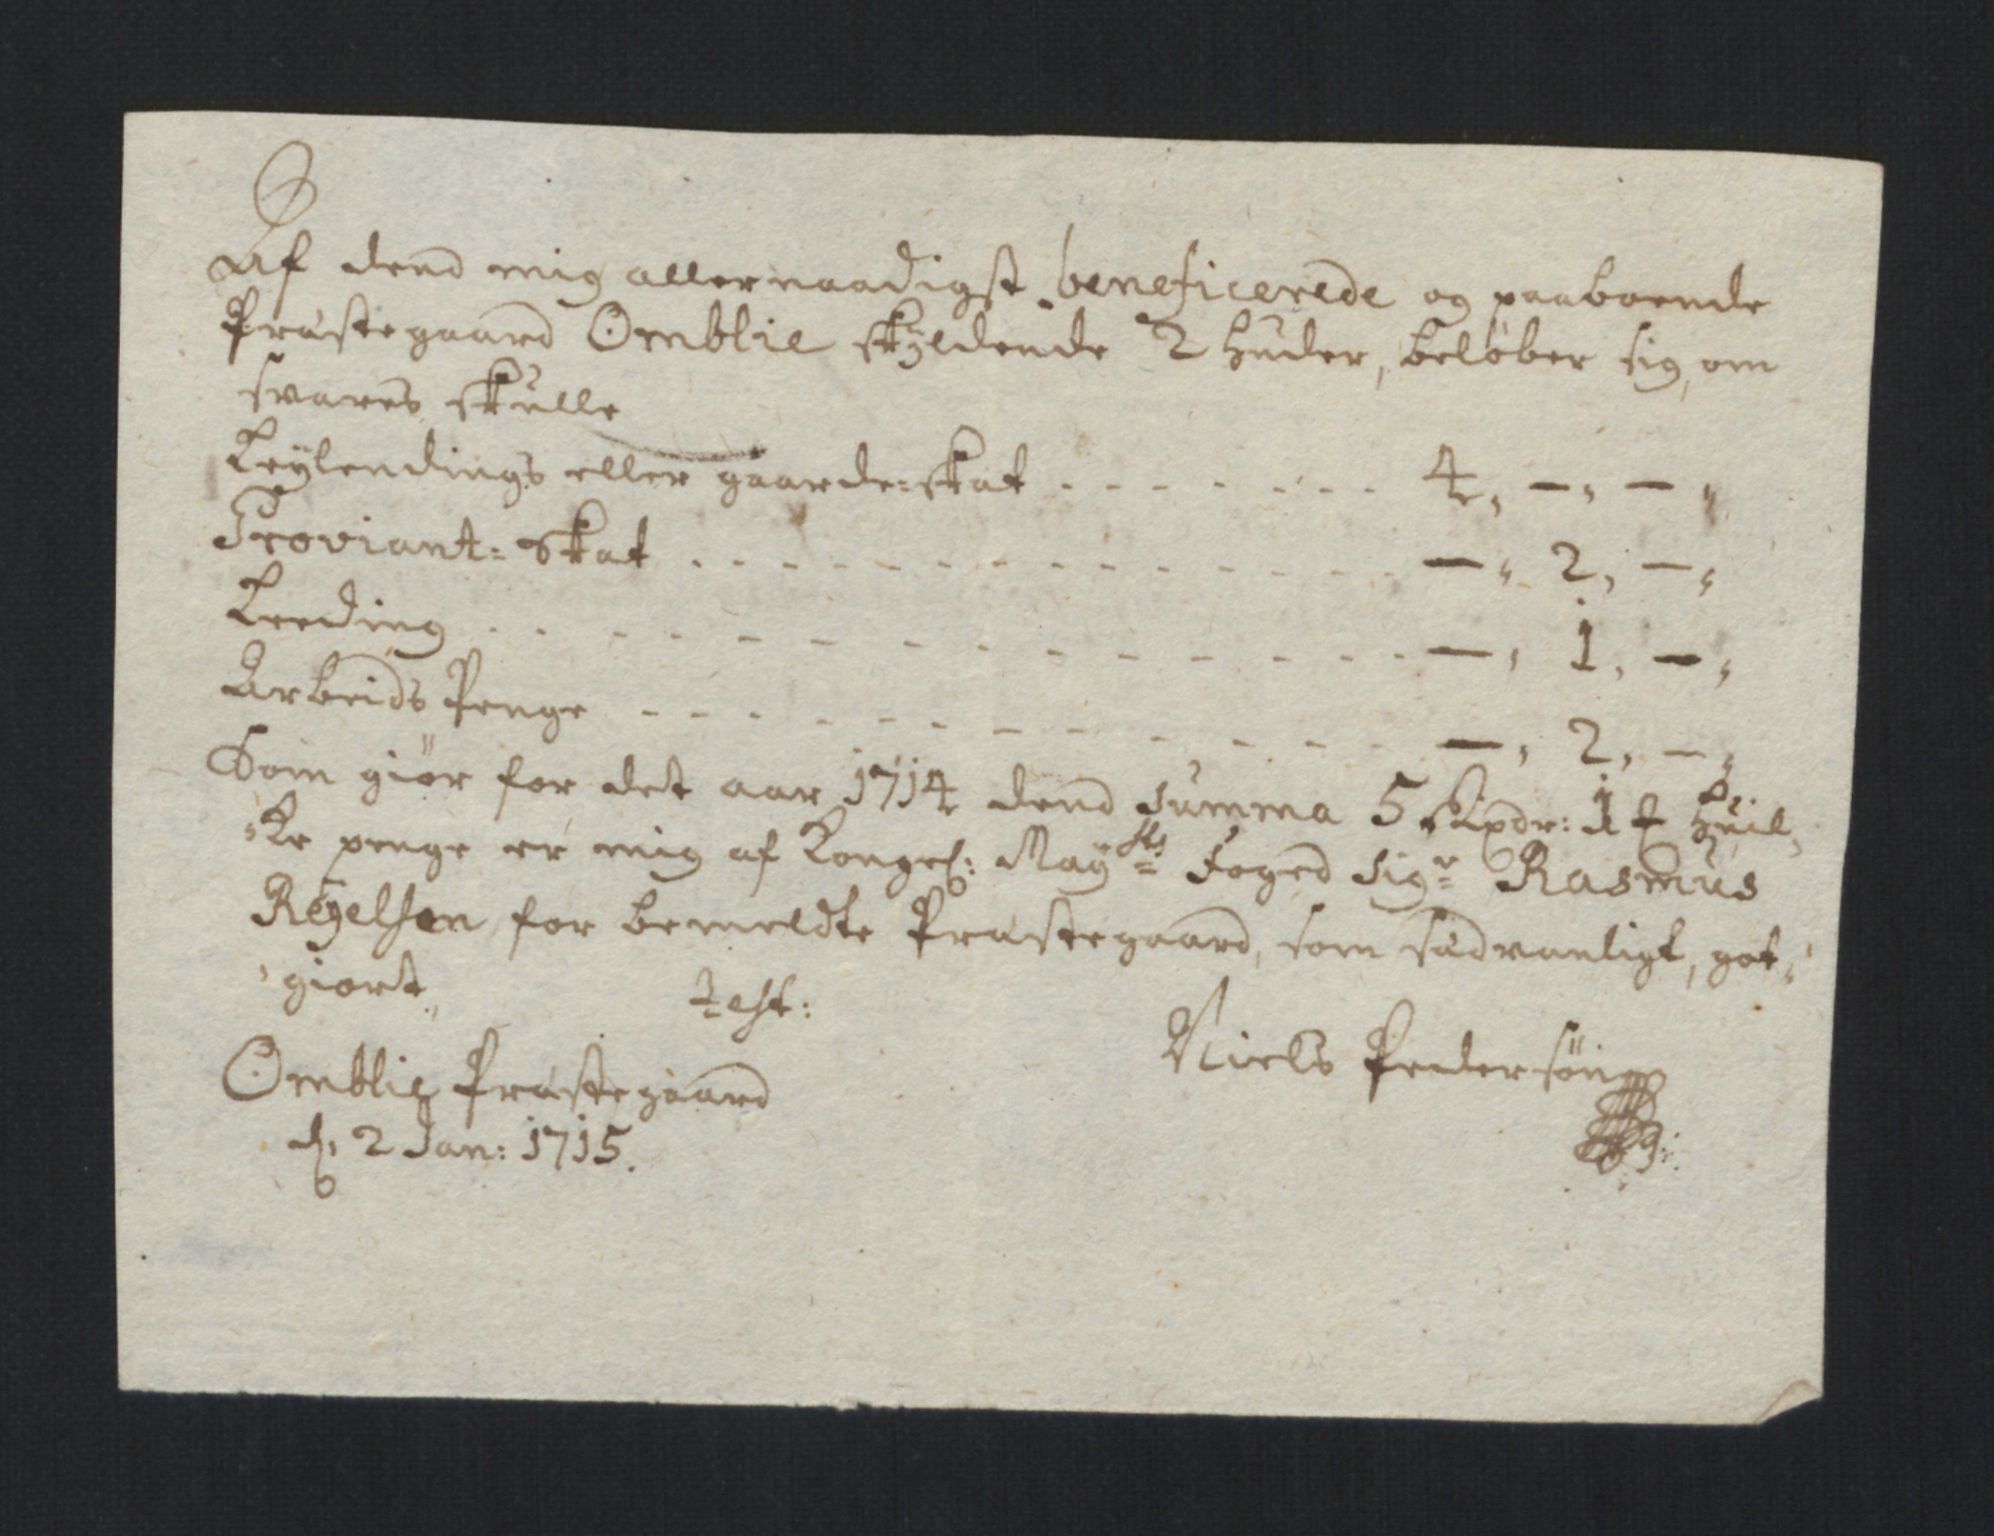 Af dend mig allernaadigst beneficerede og paaboende
Præstegaard Omblie skyldende 2 huder, beløber sig, om
svares skulle
Leylendings eller gaarde-skat - - - - - - - - 4, —, —,
Proviant-Skat - - - - - - - - - - - - —, 2, —,
Leeding - - - - - - - - - - - - —, 1, —,
Arbeids Penge - - - - - - - - - - - —, 2, —,
Som giør for det aar 1714 dend Summa 5 Rixdr: 1 hvil,
ke penge er mig af Kongel: Mayts Foged Sigr Rasmus
Regelsen for bemeldte Præstegaard, som sædvanligt, got,
giort,
test:
Niels Pedersøn
Omblie Præstegaard
d, 2 Jan: 1715.